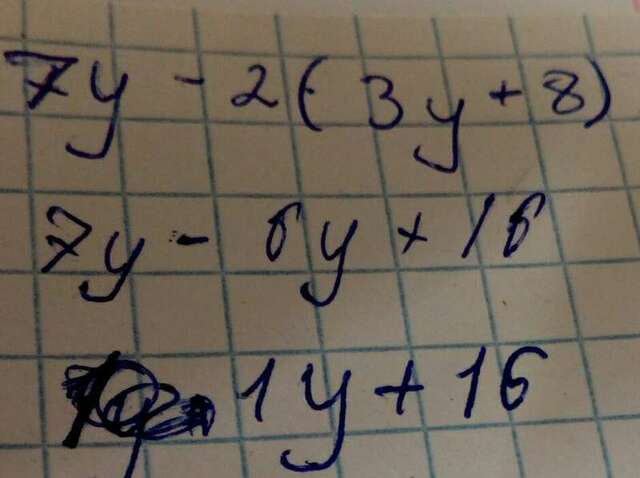 7y - 2(3y + 8)
7y - 6y + 16
1y + 16